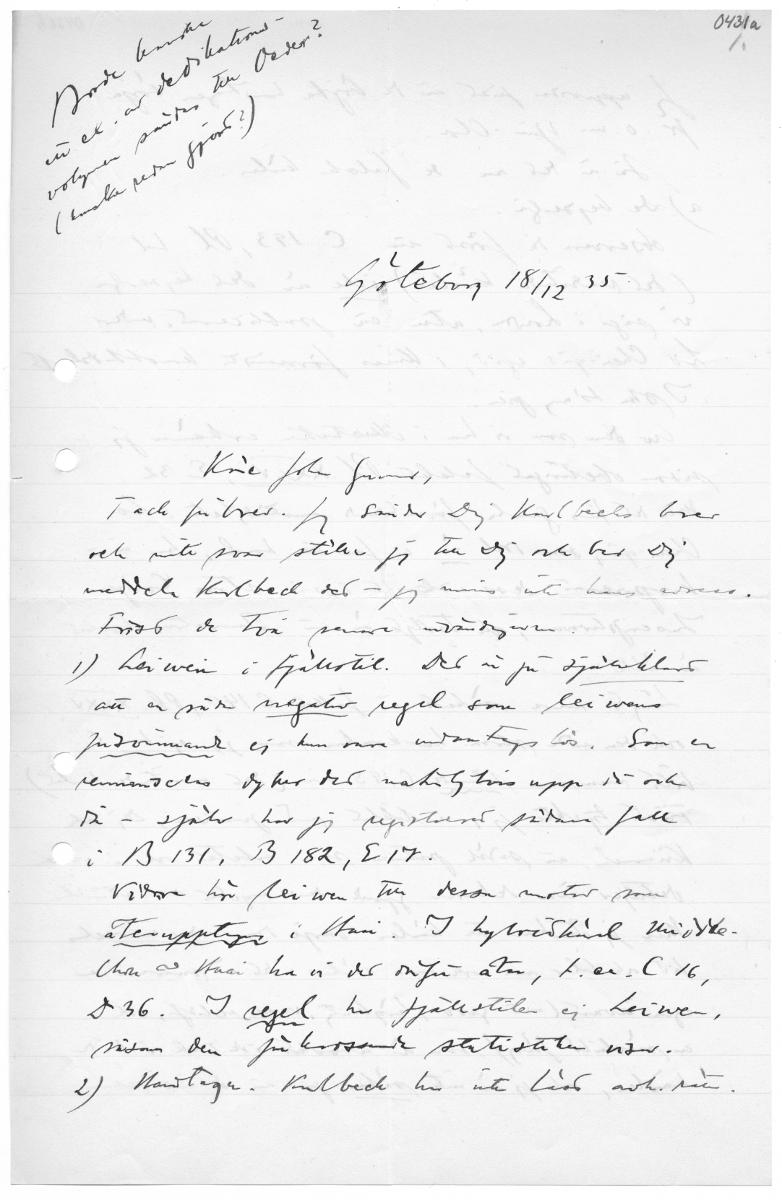 0431a
1.
Borde kanske
ett ex. av dedikations-
volymen sändas till Oeder?
(kanske redan gjord?)
Göteborg 18/12 35.
Käre John Gunnar,
Tack för brev. Jag sänder Dig Karlbecks brev
och mitt svar ställer jag till Dig och ber Dig
meddela Karlbeck det – jag minns inte hans adress.
Först de två senare invändningarna.
1) Leiwen i fjällstil. Det är ju självklart
att en sådan negativ regel som leiwens
försvinnande ej kan vara undantagslös. Som en
reminiscens dyker det naturligtvis upp då och
då – själv har jag registrerat sådana fall
i B 131, B 182, E 17.
Vidare hör leiwen till dessa motiv som
återupptages i Huai. I hybridkärl Middle-
Chou – Huai ha vi det därför åter, t. ex. C 16,
D 36. I regel har fjällstilen ej Leiwen,
såsom den förkrossande statistiken visar.
2) Handtagen. Karlbeck har inte läst avh. rätt.